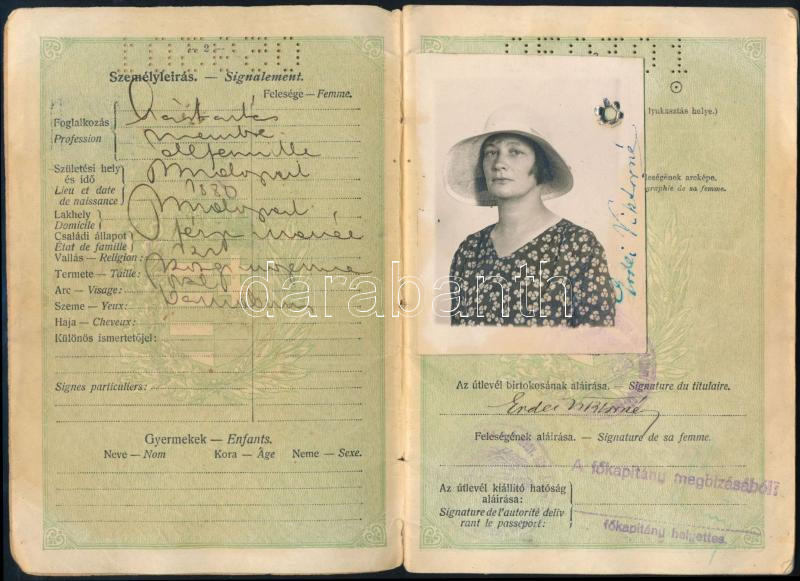 — 2 —
Személyleirás. — Signalement.
Felesége — Femme.
Foglalkozás
Profession
Háztartás
membre
Születési hely
és idő
Lieu et date
de naissance
1880
Lakhely
Domicile
Családi állapot
État de famille
férj mariée
Vallás — Religion:
Termete — Taille:
Arc — Visage:
Szeme — Yeux:
Haja — Cheveux:
Különös ismertetőjel:
Signes particuliers:
Gyermekek — Enfants.
Neve — Nom Kora — Âge Neme — Sexe.
lyukasztás helye.)
eleségének arcképe.
graphie de sa femme.
Erdei Viktorné
darabanth
Az útlevél birtokosának aláirása. — Signature du titulaire.
Erdei Viktorné
Feleségének aláirása. — Signature de sa femme.
A főkapitány megbizásából:
Az útlevél kiállitó hatóság
aláirása:
Signature de l'autorité deliv
rant le passeport:
főkapitány helyettes.